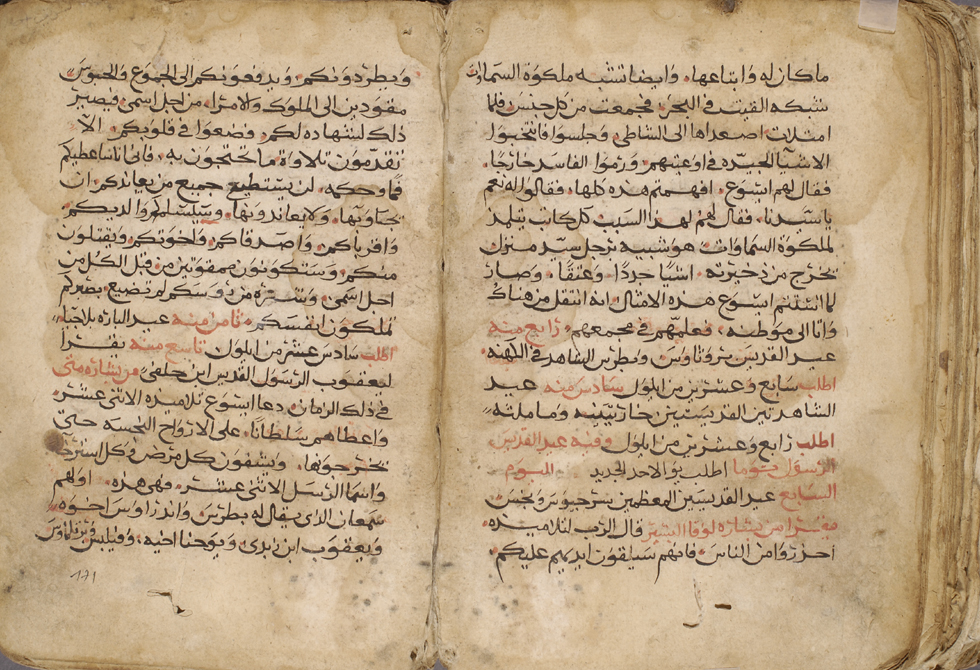 ماكان له وابتاعها. وايضا تشبه ملكوة السماوات
شبكه القيت في البحر. فجمعت من كل جنس فلما
امتلات اصعدوها الى الشاطي وجلسوا فانتخبوا
الاشيا الجيده في اوعيتهم. ورموا الفاسد خارجا.
فقال لهم ايسوع. افهمتم هذه كلها. فقالوا له نعم
يا سيدنا. فقال لهم لهذا السبب كل كاتب تلمذ
لملكوة السماوات. هو شبيه برجل سيد منزل
يخرج من ذخيرته. اشيا جددا وعتقا. وصار
لما اتم ايسوع هذه الامثال. انه انتقل من هناك
واتا الى موطنه. فعلمهم في مجمعهم. رابع منه
عيد القديس بطرس الشاهد في الكهنه.
اطلب سابع وعشرين من ايلول سادس منه عيد
الشاهدتين القديستين خاريتيني وماملثه
اطلب رابع وعشرين من ايلول وفيه عيد القديس
الرسول توما اطلب يوم الاحد الجديد اليوم
السابع عيد القديسين المعظمين سرجيوس وبخس
يقرا من بشارة لوقا البشير قال الرب لتلاميذه.
احذروا من الناس. فانهم سيلقون ايديهم عليكم.
ويطردونكم. ويدفعونكم الى الجموع والحبوس
مقودين الى الملوك والامرا. من اجل اسمي. فيصير
ذلك لشهاده لكم. فضعوا في قلوبكم. الا
تقدمون تلاوة ما تحتجون به. فاني انا ساعطيكم
فما وحكمه. لن يستطيع جميع من يعاندكم ان
يجاوبها. ولا يعاندونها. وسيسلمكم والديكم.
واقرباكم. واصدقاكم. واخوتكم. ويقتلون
منكم. وستكونون ممقوتين من قبل الكل من
اجل اسمي. وشعره من روسكم لم تضيع. بصبركم
تملكون انفسكم. ثامن منه عيد الباره بلاجيا
اطلب سادس عشر من ايلول تاسع منه يقرا
ليعقوب الرسول القديس ابن حلفى من بشاره متى
في ذلك الزمان. دعا ايسوع تلاميذه الاثني عشر.
واعطاهم سلطانا. على الارواح النجسه حتى
يخرجونها. ويشفون كل مرض وكل استرخا
واسما الرسل الاثني عشر. فهي هذه. اولهم
سمعان الذي يقال له بطرس. واندراوس اخوه.
ويعقوب ابن زبدى. ويوحنا اخيه. وفيلبس وبرتلماوس
171